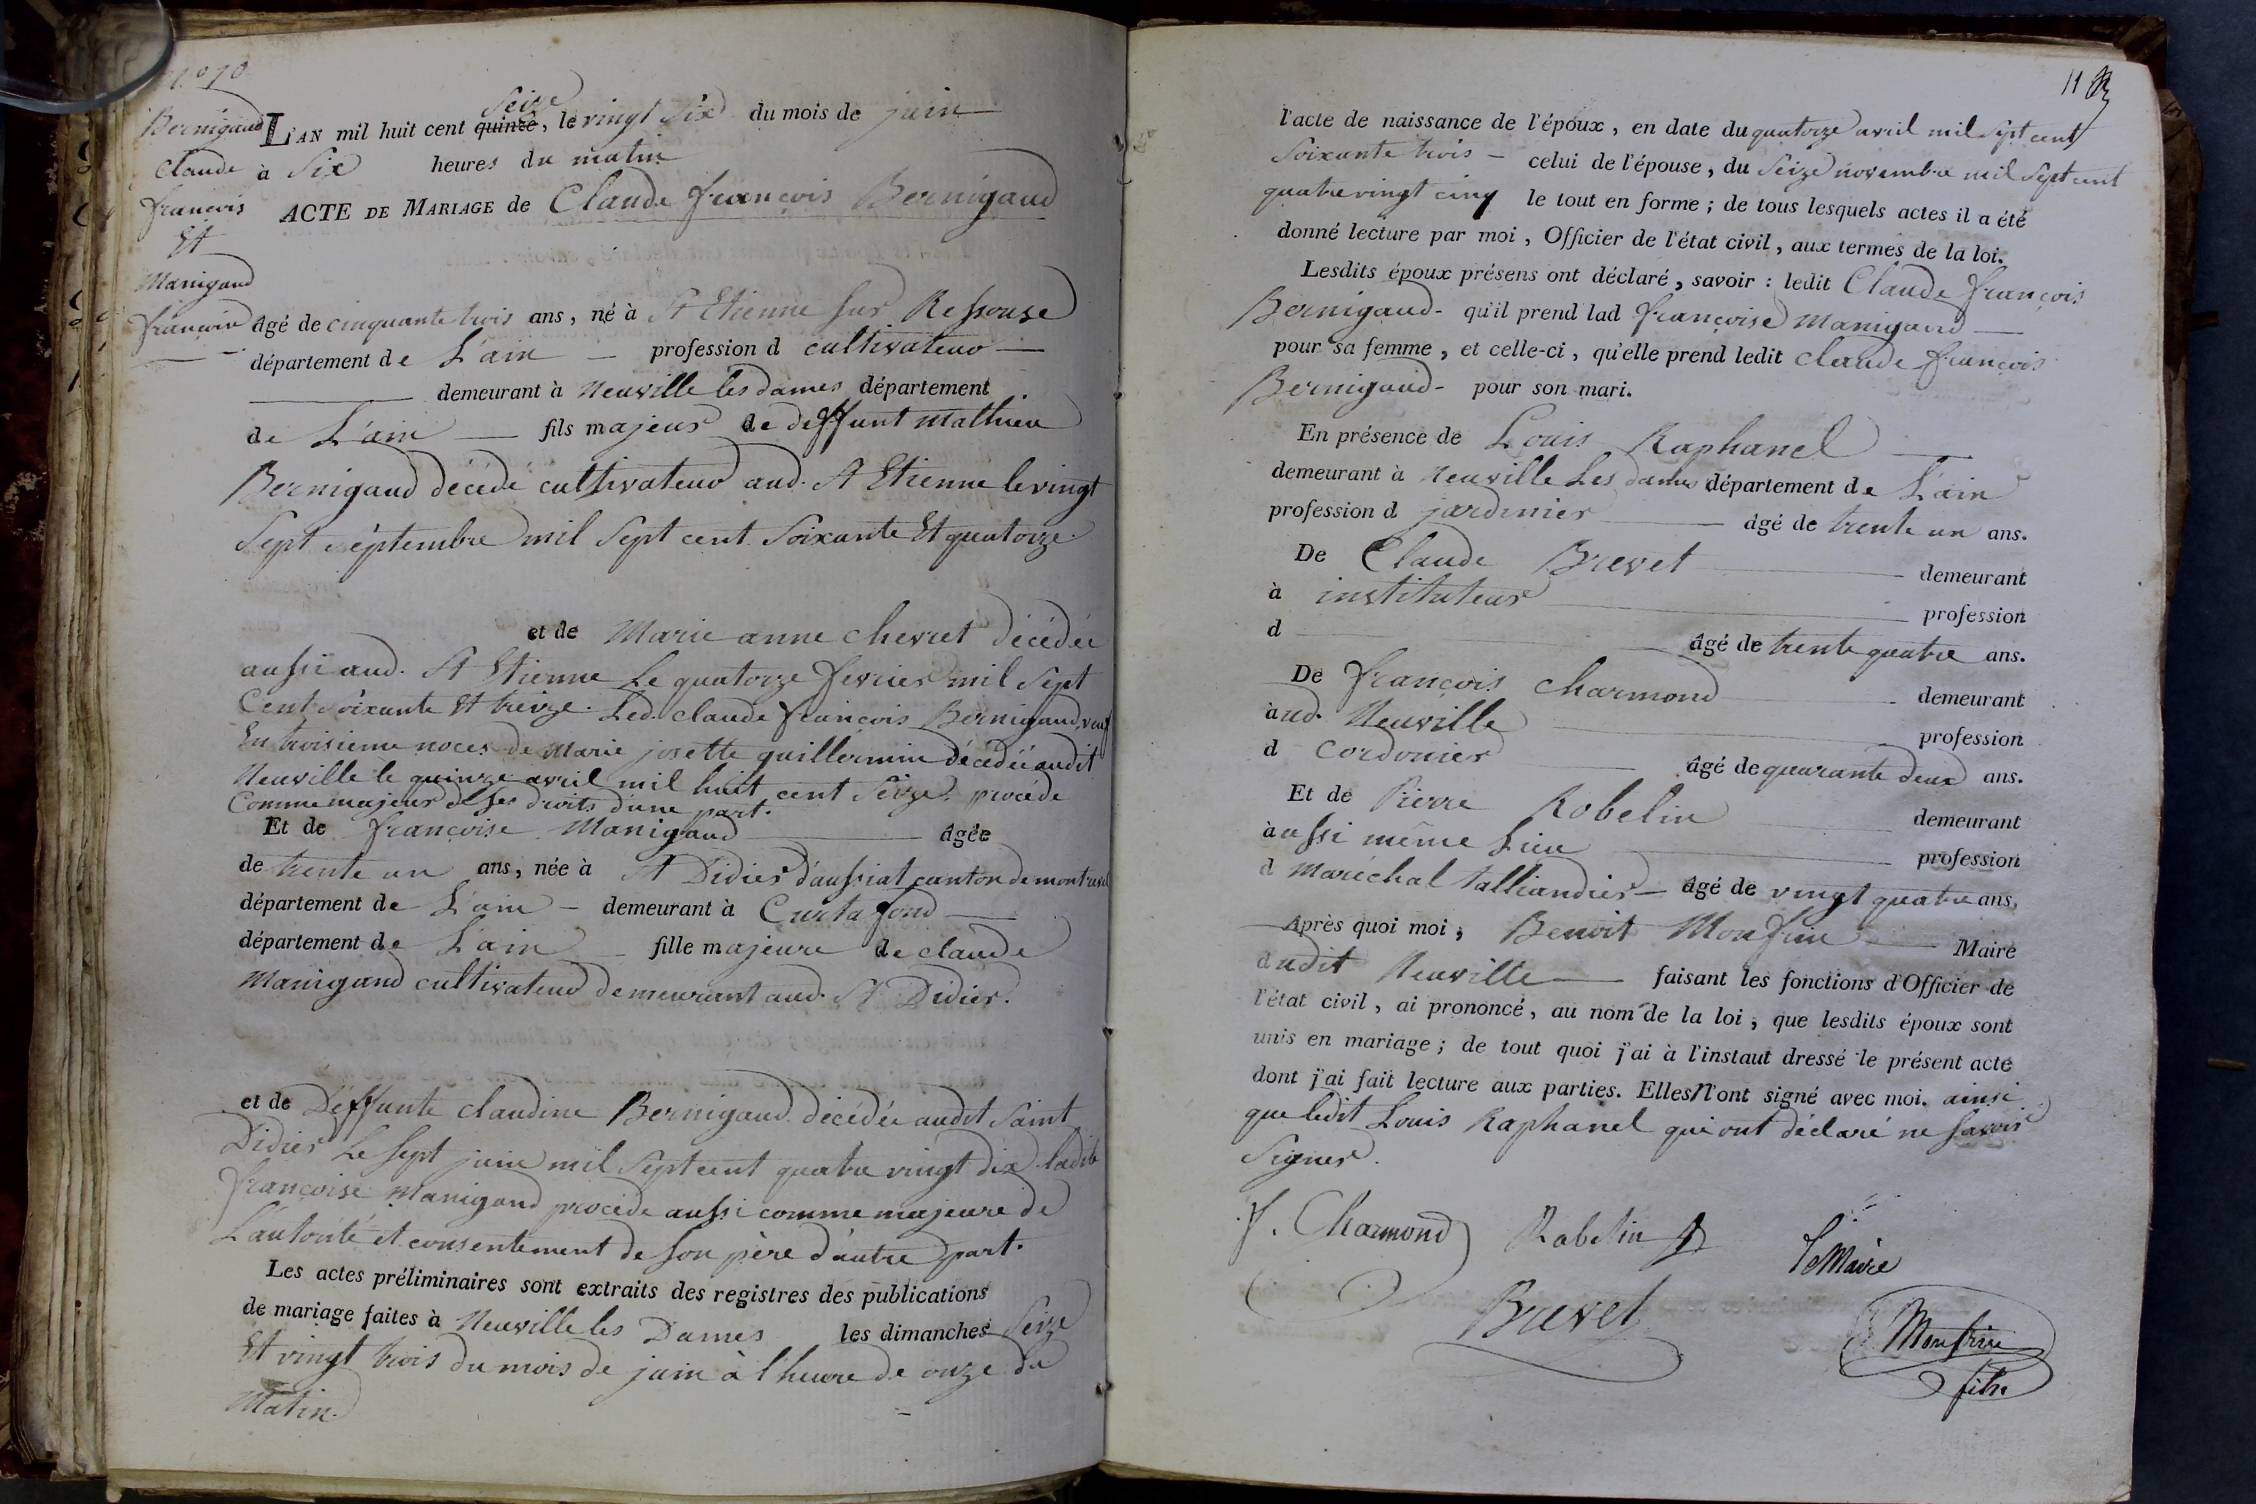 N.º 10
Bernigaud
Claude
françois
Et
Manigaud
françoise
Seize
L'AN mil huit cent quinze, le vingt Six du mois de juin
à Six heures du matin
ACTE DE MARIAGE de Claude françois Bernigaud
âgé de cinquante trois ans, né à St Etienne sur Ressouse
département de L'ain profession d cultivateur
demeurant à Neuville les dames département
de L'ain fils majeur de deffunt Mathieu
Bernigaud décédé cultivateur aud. St Etienne le vingt
Sept septembre mil Sept cent Soixante Et quatorze.
et de Marie anne Chevret décédée
aussi aud. St Etienne Le quatorze fevrier mil Sept
Cent soixante Et treize. Led. claude françois Bernigaud, veuf
En troisieme noces de Marie josette guillermin décédée audit
Neuville le quinze avril mil huit cent Seize. procede
Comme majeur de ses droits d'une part.
Et de françoise Manigaud âgée
de trente un ans, née à St Didier d'aussiat canton de montrevel
département de L'ain demeurant à Curtafond
département de L'ain fille majeure de claude
Manigaud cultivateur demeurant aud. St Didier.
et de Deffunte claudine Bernigaud décédée audit Saint
Didier Le Sept juin mil Sept cent quatre vingt dix ladite
françoise Manigaud procede aussi comme majeure de
L'autorité et consentement de Son père d'autre part.
Les actes préliminaires sont extraits des registres des publications
de mariage faites à Neuville les Dames les dimanches Seize
Et vingt trois du mois de juin à l'heure de onze du
Matin.
11
l'acte de naissance de l'époux, en date du quatorze avril mil Sept cent
Soixante trois – celui de l'épouse, du Seize novembre mil Sept cent
quatrevingt cinq le tout en forme; de tous lesquels actes il a été
donné lecture par moi, Officier de l'état civil, aux termes de la loi.
Lesdits époux présens ont déclaré, savoir : ledit Claude françois
Bernigaud - qu'il prend lad françoise Manigaud
pour sa femme, et celle-ci, qu'elle prend ledit claude françois
Bernigaud - pour son mari.
En présence de Louis Raphanel
demeurant à Neuville Les dames département de L'ain
profession d jardinier âgé de trente un ans.
De Claude Brevet demeurant
à instituteur profession
d âgé de trente quatre ans.
De françois Charmond demeurant
àud. Neuville profession
d Cordonier âgé de quarante deux ans.
Et de Pierre Robelin demeurant
àussi même Lieu profession
d Maréchal talliandier âgé de vingt quatre ans.
Après quoi moi, Benoit Monfrin Maire
dudit Neuville faisant les fonctions d'Officier de
l'état civil, ai prononcé, au nom de la loi, que lesdits époux sont
unis en mariage; de tout quoi j'ai à l'instaut dressé le présent acte
dont j'ai fait lecture aux parties. Elles n'ont signé avec moi. ainsi
que ledit Louis Raphanel qui ont déclaré ne Savoir
Signer.
f. Charmond Robelin le Maire
Brevet Monfrin